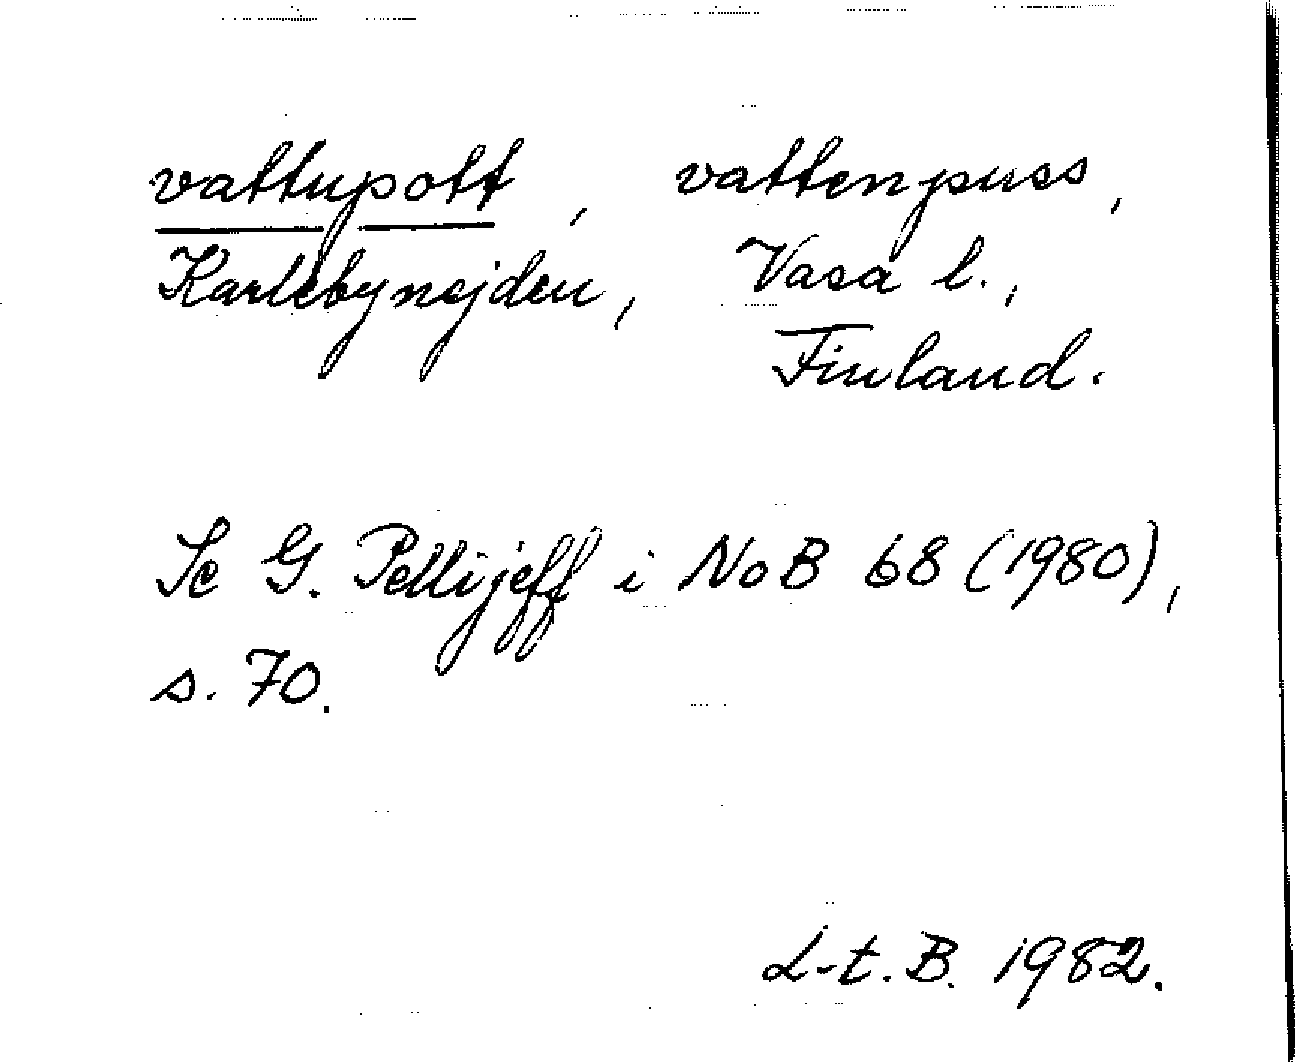 vattupott, vattenpuss,
Karlebynejden, Vasa l.,
Finland.
Se G. Pellijeff i NoB 68 (1980),
s. 70.
L-t. B. 1982.